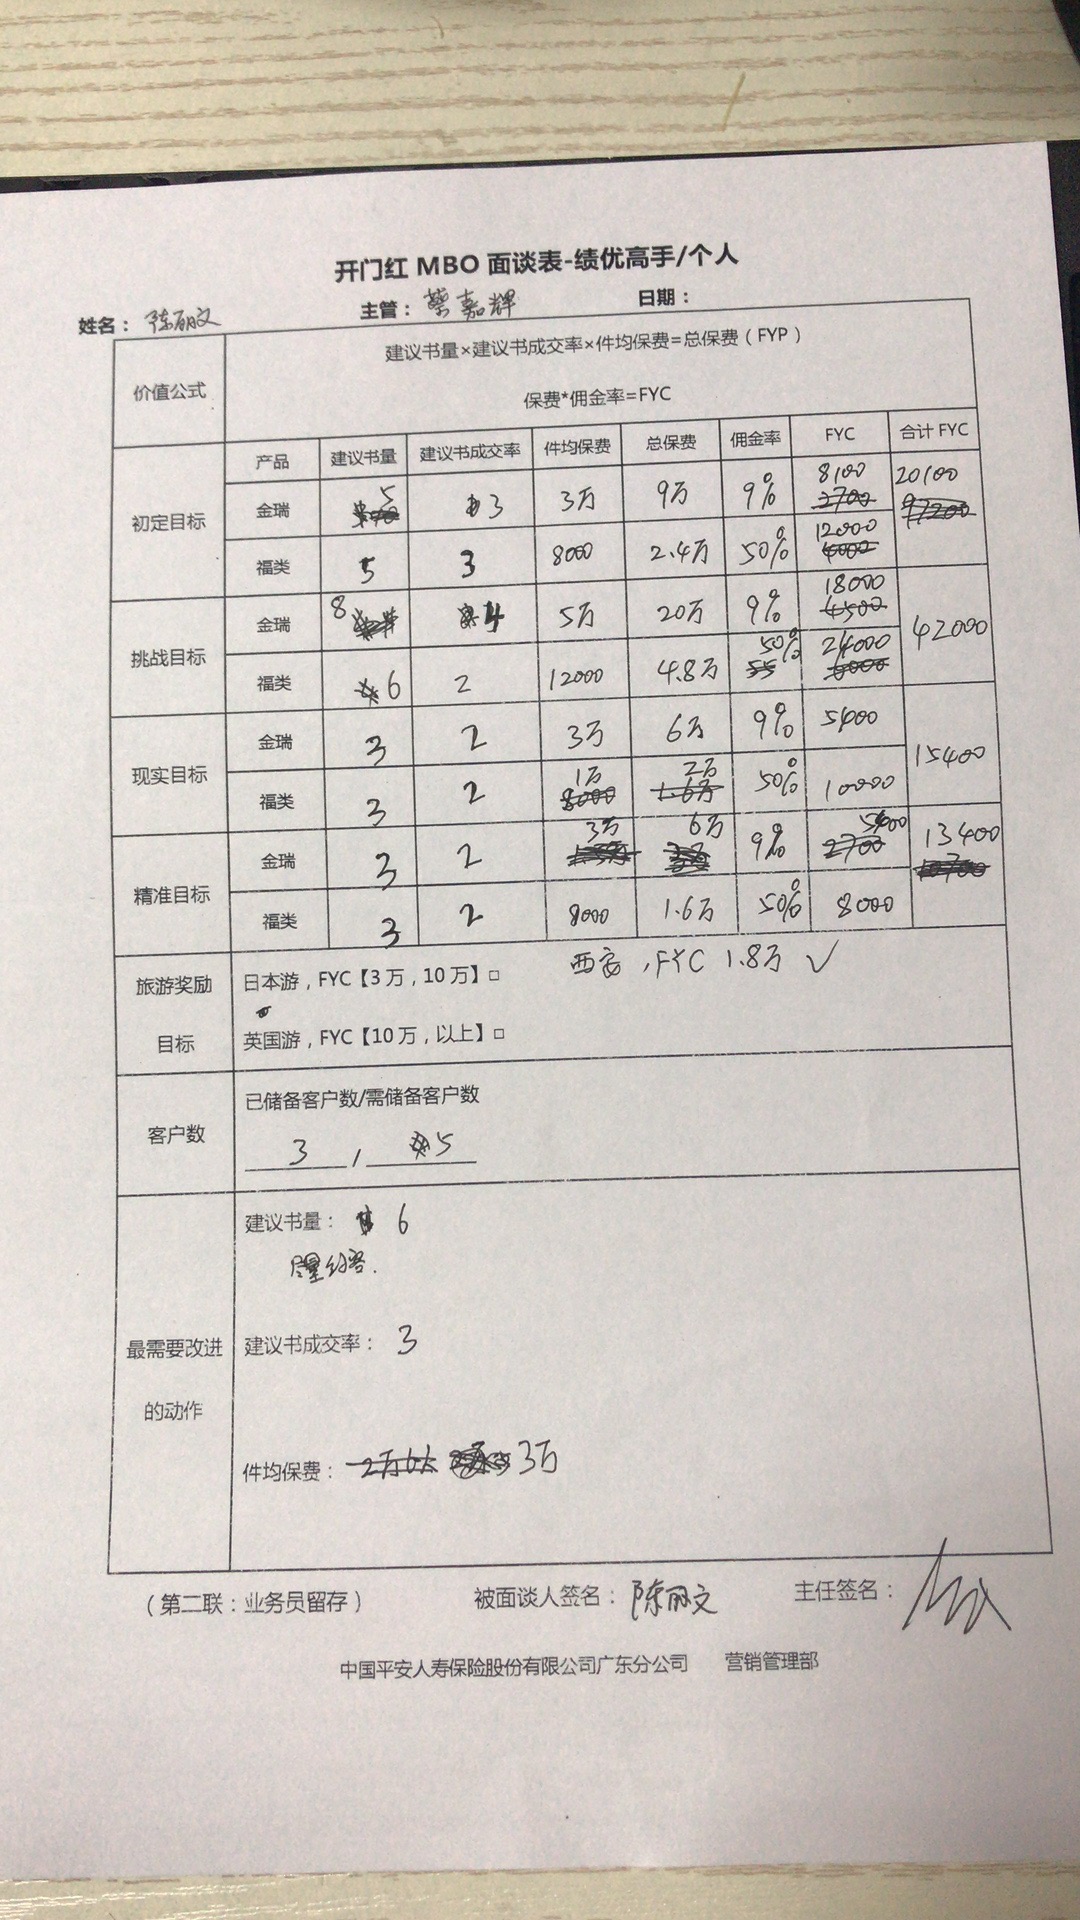 开门红 MBO 面谈表-绩优高手/个人
姓名： 陈丽文 主管： 蔡嘉辉 日期：
价值公式
建议书量×建议书成交率×件均保费=总保费（FYP）
保费*佣金率=FYC
产品 建议书量 建议书成交率 件均保费 总保费 佣金率 FYC 合计 FYC
初定目标
金瑞 5 3 3万 9万 9% 8100 2700 20100 97200
福类 5 3 8000 2.4万 50% 12000 4000
挑战目标
金瑞 8 4 5万 20万 9% 18000 4500 42000
福类 6 2 12000 4.8万 50% 55 24000 6000
现实目标
金瑞 3 2 3万 6万 9% 5400 15400
福类 3 2 1万 8000 2万 1.6万 50% 10000
精准目标
金瑞 3 2 3万 6万 9% 5400 2700 13400 10700
福类 3 2 8000 1.6万 50% 8000
旅游奖励
目标
日本游，FYC【3万，10万】□ 西安，FYC 1.8万 ✓
英国游，FYC【10万，以上】□
客户数
已储备客户数/需储备客户数
3 / 5
最需要改进
的动作
建议书量： 6
尽量约客.
建议书成交率： 3
件均保费： 3万
（第二联：业务员留存） 被面谈人签名： 陈丽文 主任签名：
中国平安人寿保险股份有限公司广东分公司 营销管理部